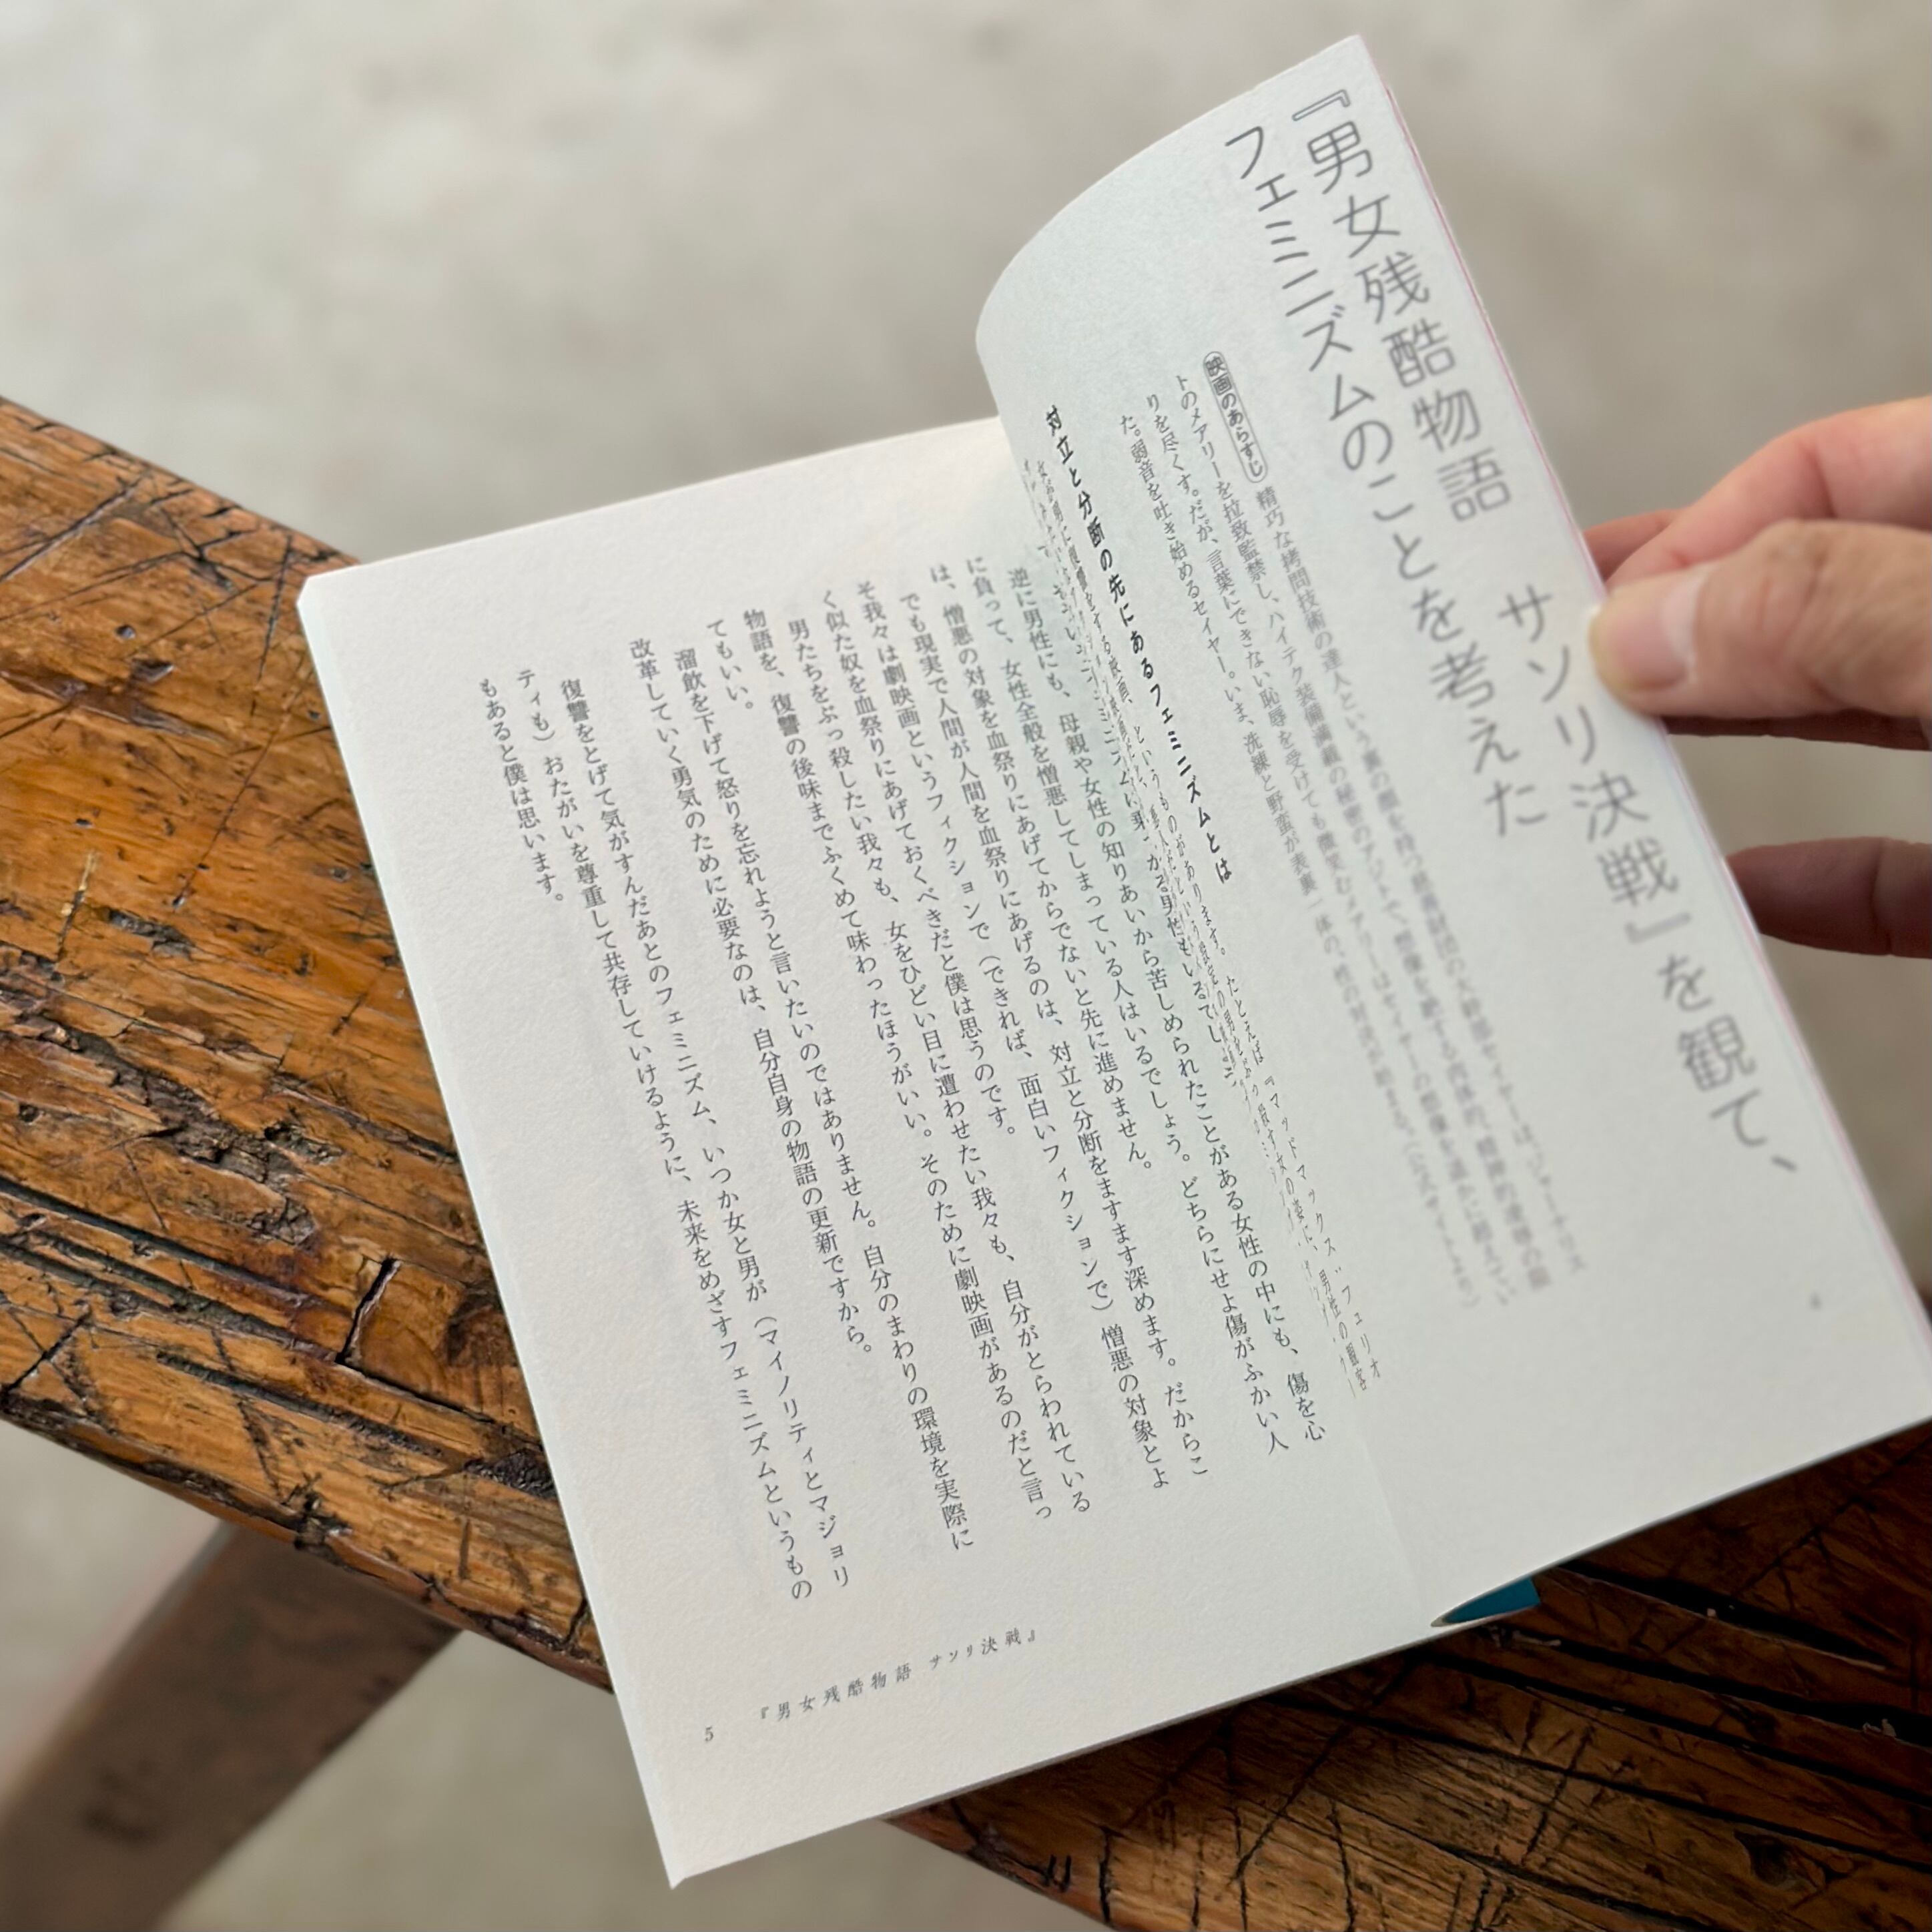 『男女残酷物語 サソリ決戦』を観て、
フェミニズムのことを考えた
映画のあらすじ
精巧な拷問技術の達人という裏の顔を持つ慈善財団の大幹部セイヤーは、ジャーナリス
トのメアリーを拉致監禁し、ハイテク装備満載の秘密のアジトで、想像を絶する肉体的、精神的凌辱の限
りを尽くす。だが、言葉にできない恥辱を受けても微笑むメアリーはセイヤーの想像を遥かに超えてい
た。弱音を吐き始めるセイヤー。いま、洗練と野蛮が表裏一体の、性の対決が始まる。(公式サイトより)
対立と分断の先にあるフェミニズムとは
というものがあります。たとえば『マッドマックス フュリオ
逆に男性にも、母親や女性の知りあいから苦しめられたことがある女性の中にも、傷を心
に負って、女性全般を憎悪してしまっている人はいるでしょう。どちらにせよ傷がふかい人
は、憎悪の対象を血祭りにあげてからでないと先に進めません。
でも現実で人間が人間を血祭りにあげるのは、対立と分断をますます深めます。だからこ
そ我々は劇映画というフィクションで(できれば、面白いフィクションで)憎悪の対象とよ
く似た奴を血祭りにあげておくべきだと僕は思うのです。
男たちをぶっ殺したい我々も、女をひどい目に遭わせたい我々も、自分がとらわれている
物語を、復讐の後味までふくめて味わったほうがいい。そのために劇映画があるのだと言っ
てもいい。
溜飲を下げて怒りを忘れようと言いたいのではありません。自分のまわりの環境を実際に
改革していく勇気のために必要なのは、自分自身の物語の更新ですから。
復讐をとげて気がすんだあとのフェミニズム、いつか女と男が(マイノリティとマジョリ
ティも)おたがいを尊重して共存していけるように、未来をめざすフェミニズムというもの
もあると僕は思います。
5 『男女残酷物語 サソリ決戦』